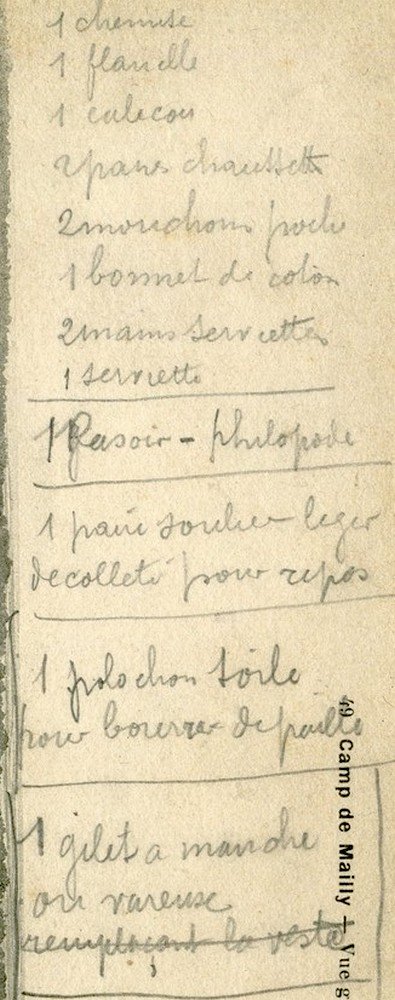 1 chemise
1 flanelle
1 calecon
2 paires chaussett
2 mouchoirs poche
1 bonnet de coton
2 mains serviettes
1 serviette
1 Rasoir - philopode
1 pair soulier leger
decolleté pour repos
1 polochon toile
pour bourrer de paille
1 gilet a manche
ou vareuse
remplaçant la veste
49 Camp de Mailly – Vue g